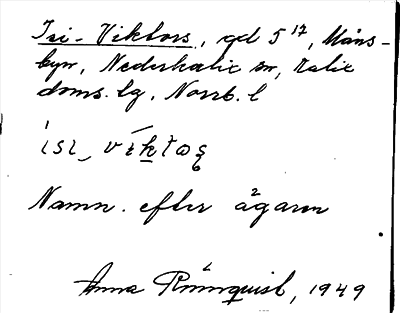 Isi-Viktors, gd 5¹⁷, Måns-
byn, Nederkalix sn, Kalix
doms. lg, Norrb. l
ísì_ víktɷṣ
Namn. efter ägaren
Anna Rönnquist, 1949